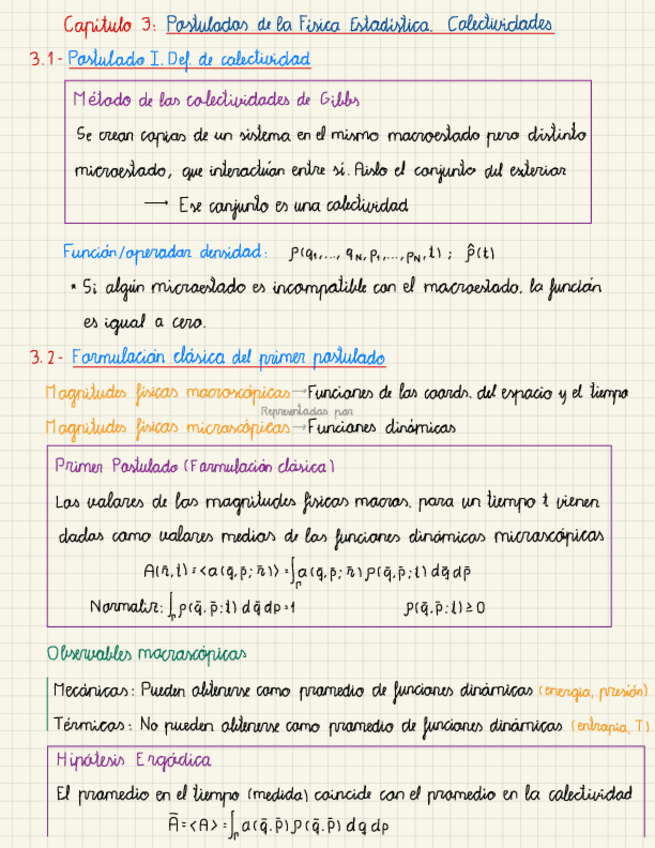 Capítulo 3: Postulados de la Física Estadística. Colectividades
3.1- Postulado I. Def. de colectividad
Método de las colectividades de Gibbs
Se crean copias de un sistema en el mismo macroestado pero distinto
microestado, que interactúan entre sí. Aíslo el conjunto del exterior
→ Ese conjunto es una colectividad
Función/operador densidad: ρ(q₁,..., qN, p₁,..., pN, t) ; ρ̂(t)
• Si algún microestado es incompatible con el macroestado, la función
es igual a cero.
3.2- Formulación clásica del primer postulado
Magnitudes físicas macroscópicas → Funciones de las coords. del espacio y el tiempo
Representadas por
Magnitudes físicas microscópicas → Funciones dinámicas
Primer Postulado (Formulación clásica)
Los valores de las magnitudes físicas macros. para un tiempo t vienen
dados como valores medios de las funciones dinámicas microscópicas
A(r̄,t) = <a(q̄,p̄; r̄)> = ∫Γ a(q̄,p̄; r̄) ρ(q̄,p̄;t) dq̄ dp̄
Normaliz: ∫Γ ρ(q̄,p̄;t) dq̄ dp = 1 ρ(q̄,p̄;t) ≥ 0
Observables macroscópicos
Mecánicos: Pueden obtenerse como promedio de funciones dinámicas (energía, presión)
Térmicos: No pueden obtenerse como promedio de funciones dinámicas (entropía, T)
Hipótesis Ergódica
El promedio en el tiempo (medida) coincide con el promedio en la colectividad
Ā = <A> = ∫Γ a(q̄,p̄) ρ(q̄,p̄) dq dp